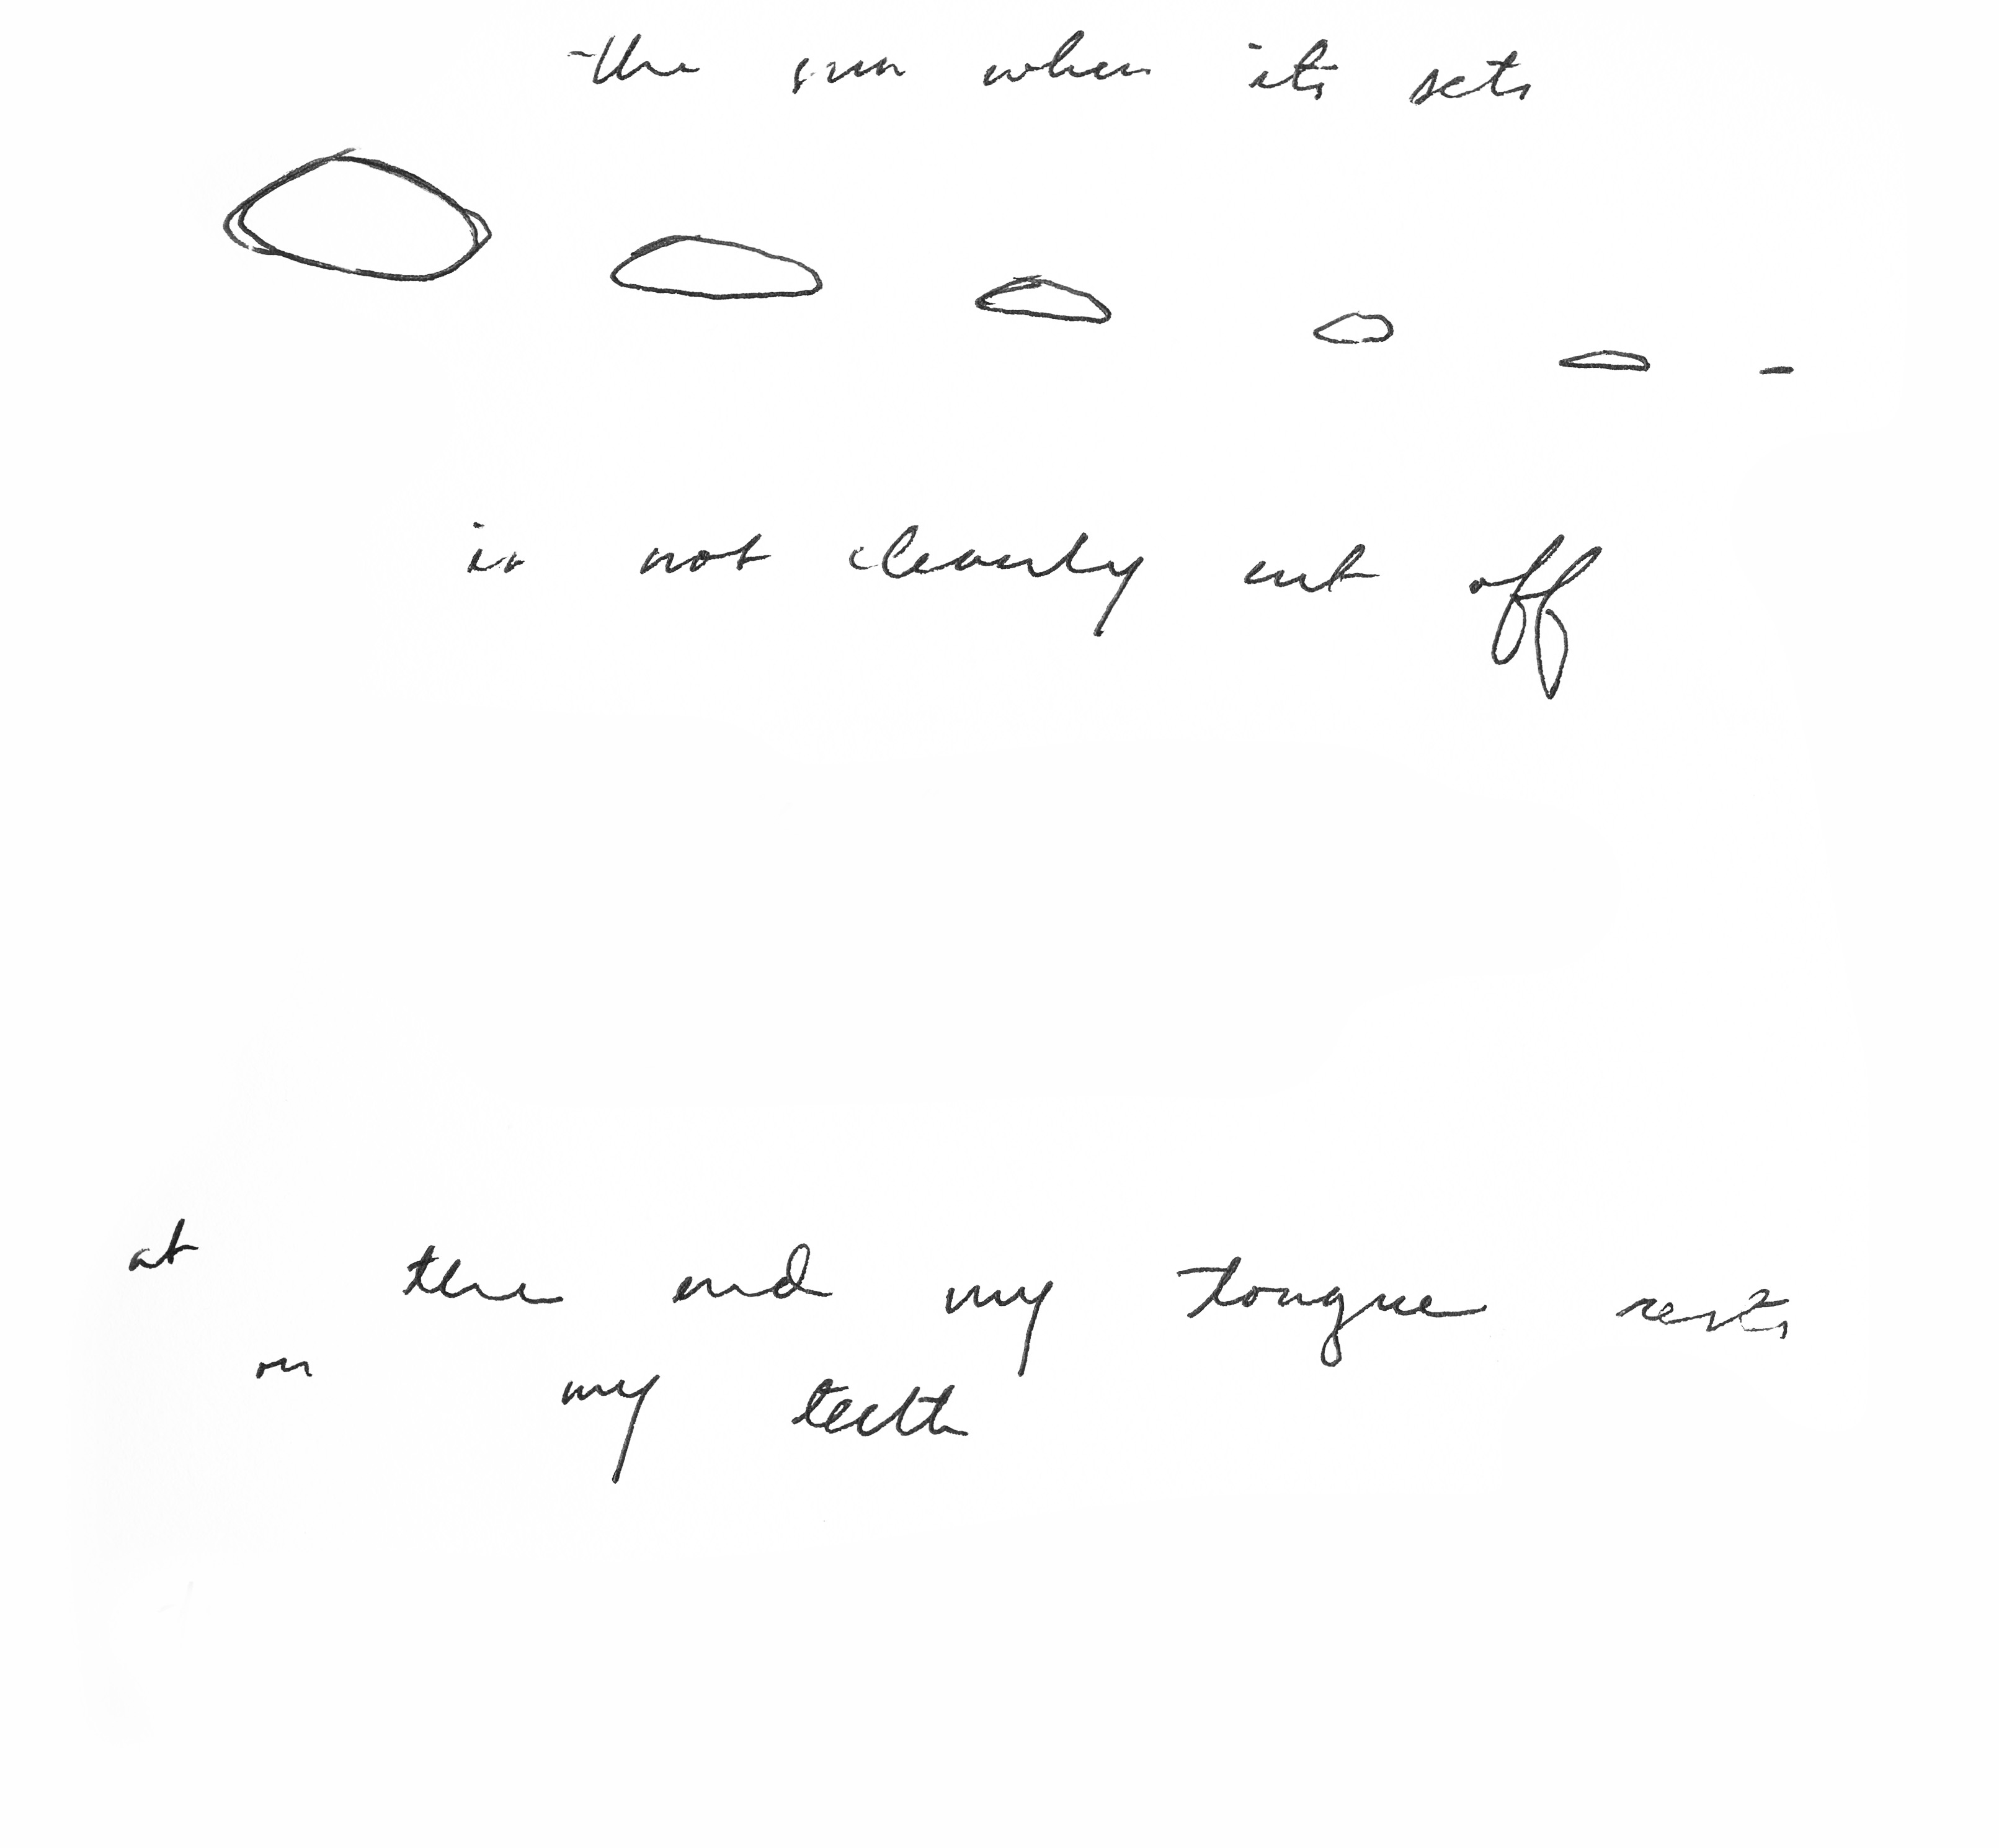 the sun when its sets
is not cleanly cut off
at the end my tongue rests
on my teeth